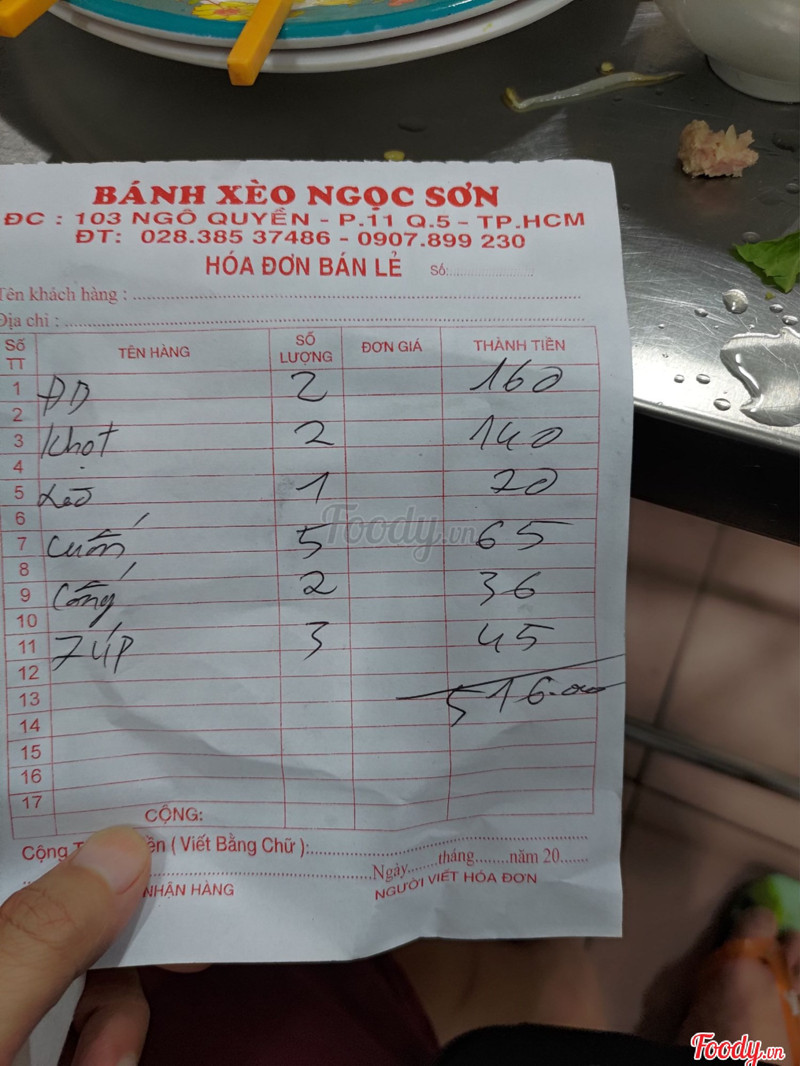 BÁNH XÈO NGỌC SƠN
ĐC : 103 NGÔ QUYỀN - P.11 Q.5 - TP.HCM
ĐT: 028.385 37486 - 0907.899 230
HÓA ĐƠN BÁN LẺ Số:
Tên khách hàng :
Địa chỉ :
Số TT TÊN HÀNG SỐ LƯỢNG ĐƠN GIÁ THÀNH TIỀN
1 ĐB 2 160
2
3 Khọt 2 140
4
5 1 70
6
7 Cuốn 5 65
8
9 Cống 2 36
10
11 Zúp 3 45
12
13 516.000
14
15
16
17
CỘNG:
Cộng ( Viết Bằng Chữ ):
Ngày tháng năm 20
NHẬN HÀNG NGƯỜI VIẾT HÓA ĐƠN
Foody.vn
Foody.vn